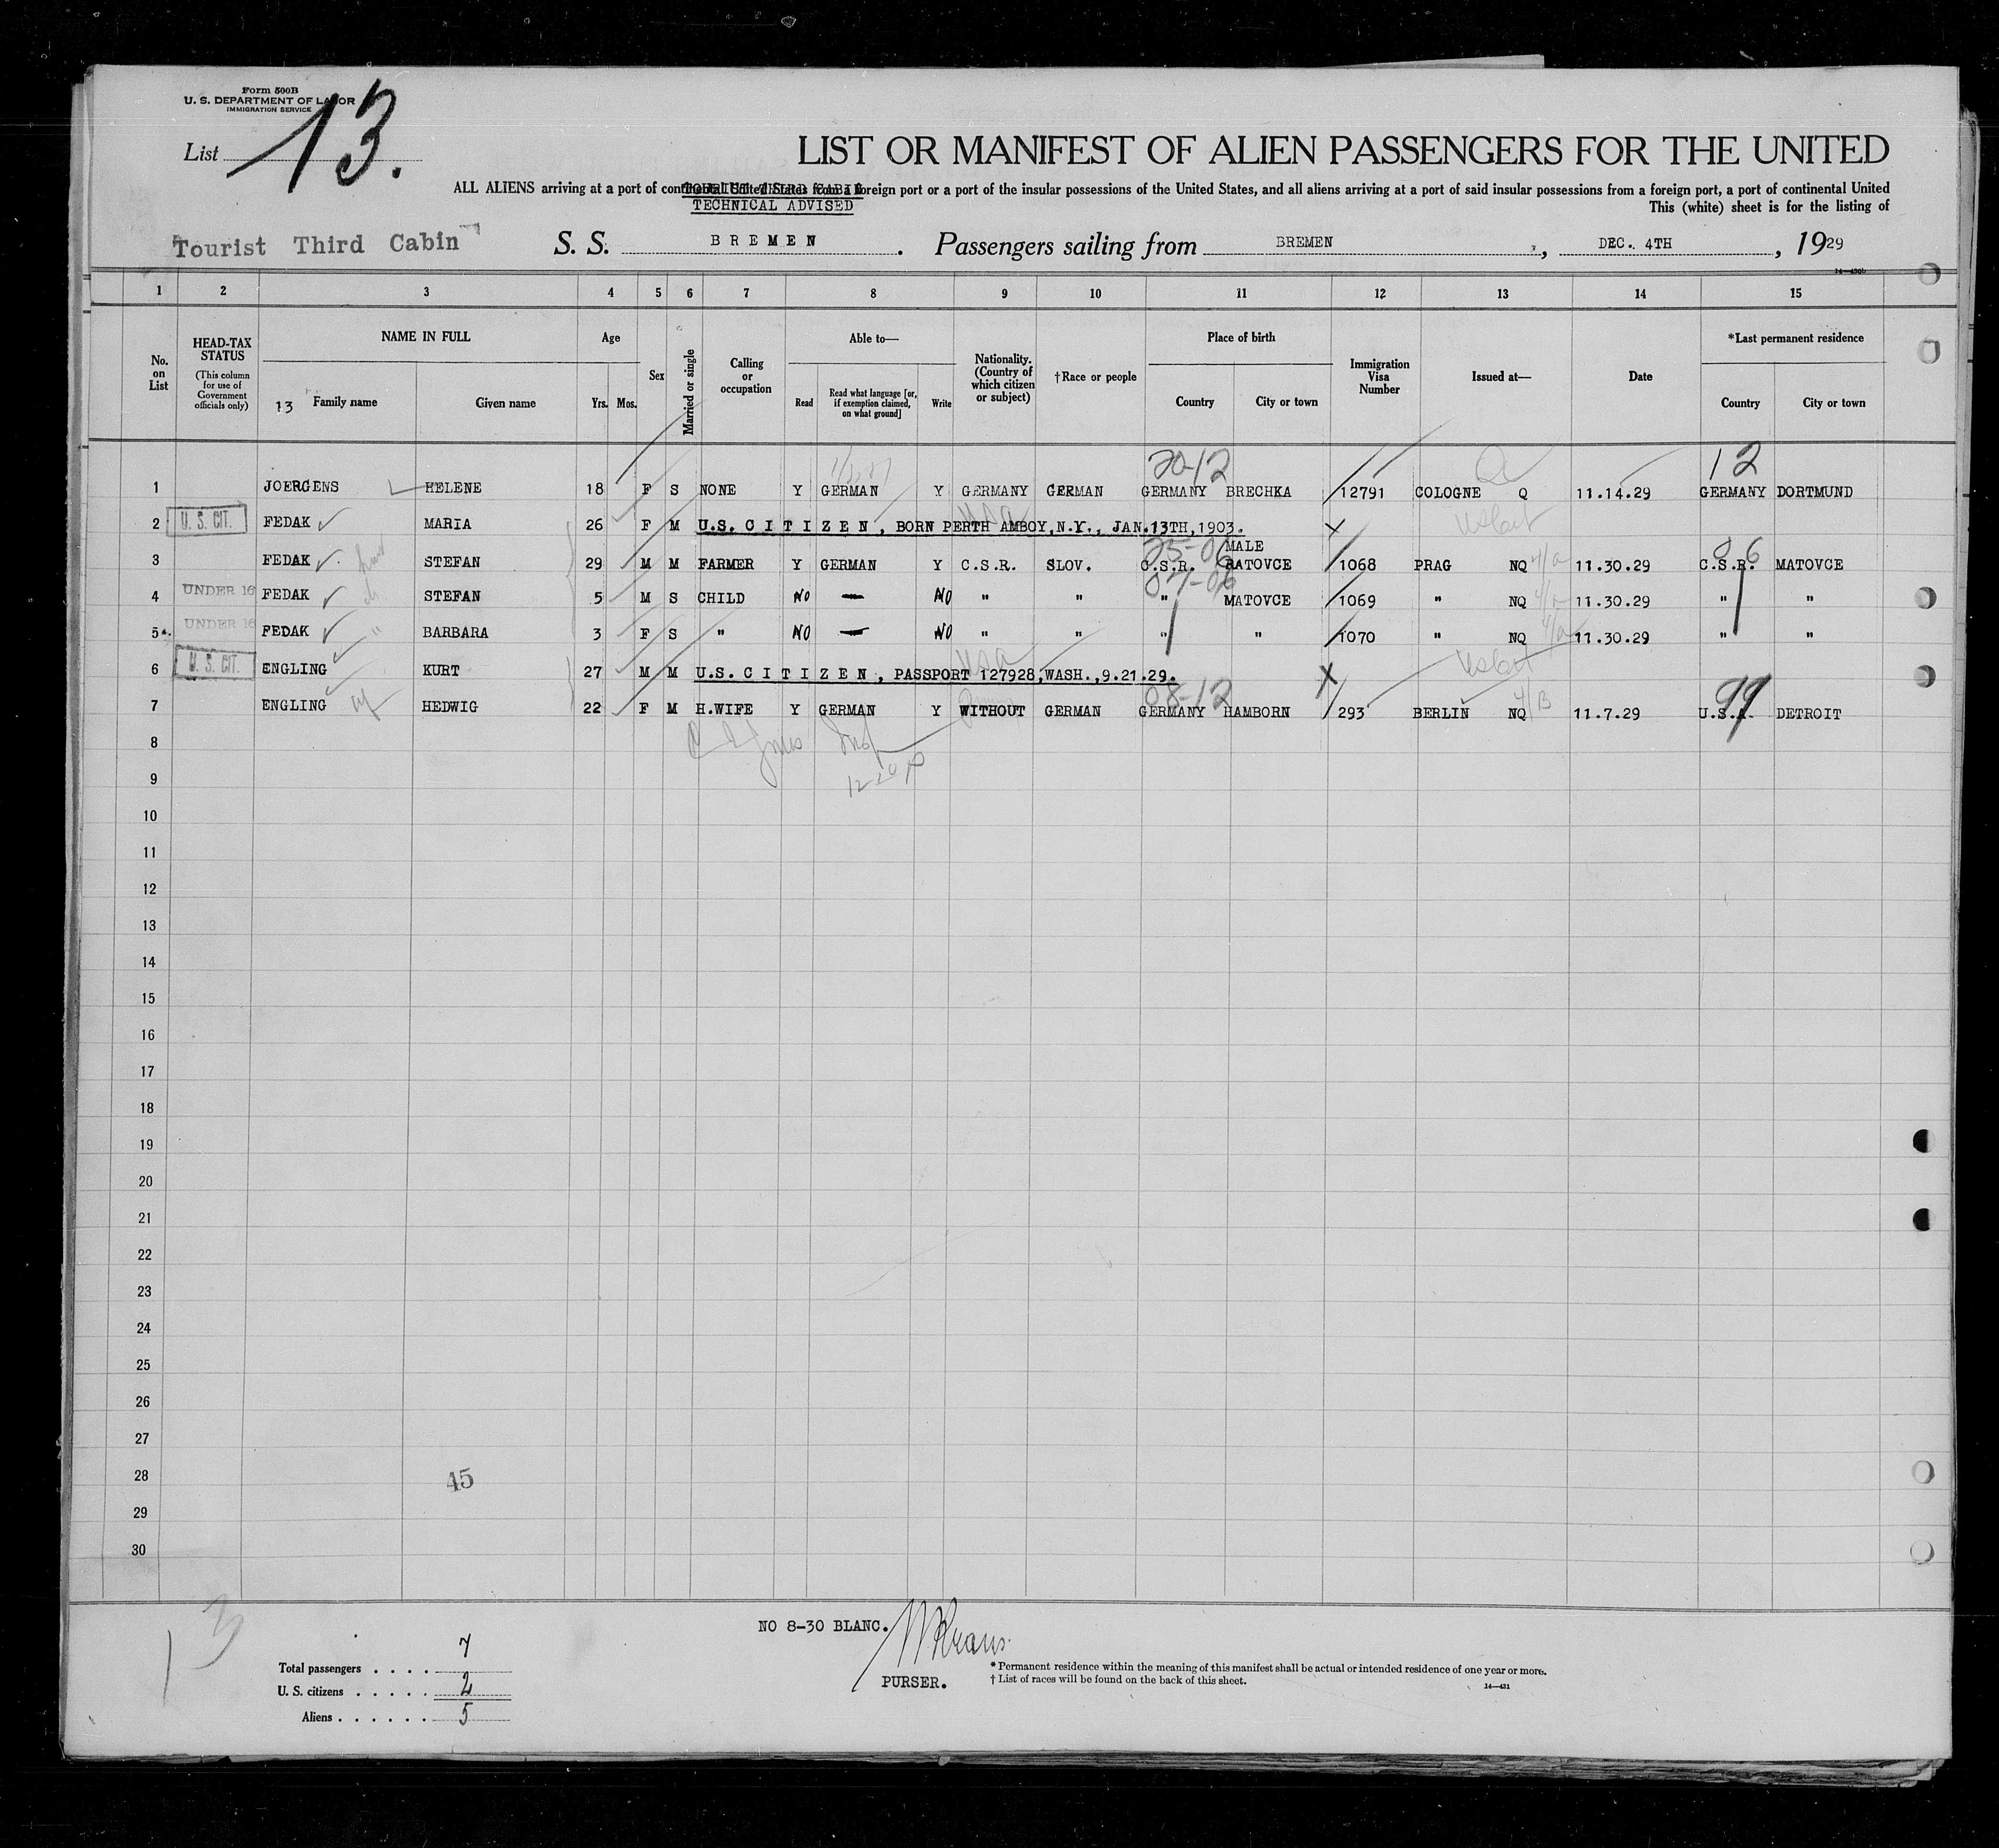 Form 500B
U. S. DEPARTMENT OF LABOR
IMMIGRATION SERVICE
List 13.
LIST OR MANIFEST OF ALIEN PASSENGERS FOR THE UNITED
ALL ALIENS arriving at a port of continental United States from a foreign port or a port of the insular possessions of the United States, and all aliens arriving at a port of said insular possessions from a foreign port, a port of continental United
TOURIST THIRD CABIN
TECHNICAL ADVISED
This (white) sheet is for the listing of
Tourist Third Cabin S. S. BREMEN. Passengers sailing from BREMEN, DEC. 4TH, 1929
14—430b
1 2 3 4 5 6 7 8 9 10 11 12 13 14 15
No. on List
HEAD-TAX STATUS (This column for use of Government officials only)
NAME IN FULL
13 Family name Given name
Age Yrs. Mos.
Sex
Married or single
Calling or occupation
Able to— Read Read what language [or, if exemption claimed, on what ground] Write
Nationality. (Country of which citizen or subject)
†Race or people
Place of birth Country City or town
Immigration Visa Number
Issued at—
Date
*Last permanent residence Country City or town
20-12 12
1 JOERGENS HELENE 18 F S NONE Y GERMAN Y GERMANY GERMAN GERMANY BRECHKA 12791 COLOGNE Q 11.14.29 GERMANY DORTMUND
2 U. S. CIT. FEDAK MARIA 26 F M U.S. CITIZEN, BORN PERTH AMBOY, N.Y., JAN.13TH, 1903.
25-06 MALE 06
3 FEDAK STEFAN 29 M M FARMER Y GERMAN Y C.S.R. SLOV. C.S.R. RATOVCE 1068 PRAG NQ 11.30.29 C.S.R. MATOVCE
07-06
4 UNDER 16 FEDAK STEFAN 5 M S CHILD NO — NO " " " MATOVCE 1069 " NQ 11.30.29 " "
5 UNDER 16 FEDAK BARBARA 3 F S " NO — NO " " " " 1070 " NQ 11.30.29 " "
6 U. S. CIT. ENGLING KURT 27 M M U.S. CITIZEN, PASSPORT 127928, WASH., 9.21.29.
08-12 99
7 ENGLING HEDWIG 22 F M H.WIFE Y GERMAN Y WITHOUT GERMAN GERMANY HAMBORN 293 BERLIN NQ 11.7.29 U.S.A. DETROIT
8
9
10
11
12
13
14
15
16
17
18
19
20
21
22
23
24
25
26
27
28 45
29
30
13
NO 8-30 BLANC.
PURSER.
Total passengers . . . . 7
U. S. citizens . . . . . 2
Aliens . . . . . . 5
* Permanent residence within the meaning of this manifest shall be actual or intended residence of one year or more.
† List of races will be found on the back of this sheet.
14—431